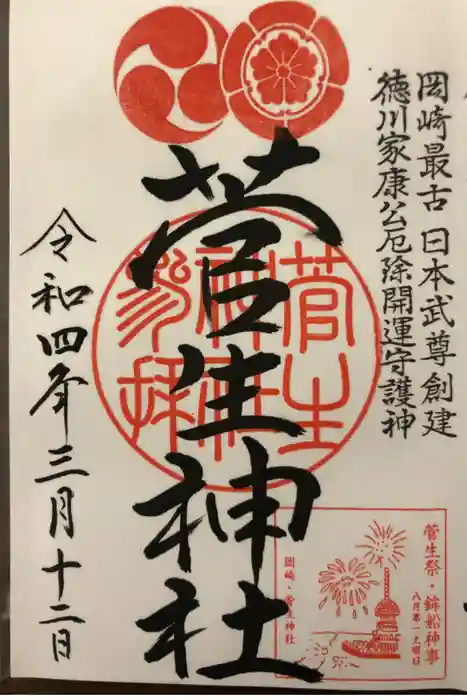 岡崎最古 日本武尊創建
徳川家康公厄除開運守護神
菅生神社
菅生神社参拝
令和四年三月十二日
菅生祭・鉾船神事
八月第一土曜日
岡崎・菅生神社